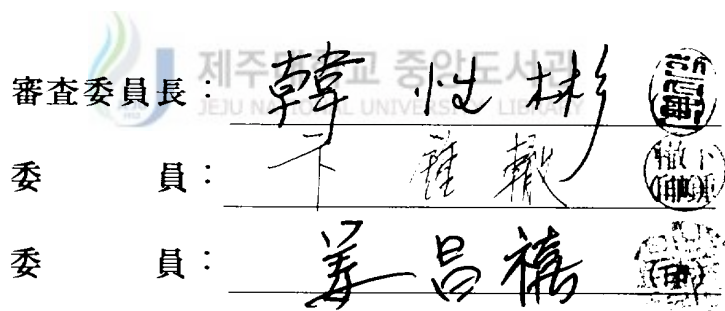 제주대학교 중앙도서관
JEJU NATIONAL UNIVERSITY LIBRARY
審査委員長 : 韓 性 彬
委 員 : 卞 鍾 轍
委 員 : 姜 昌 禧